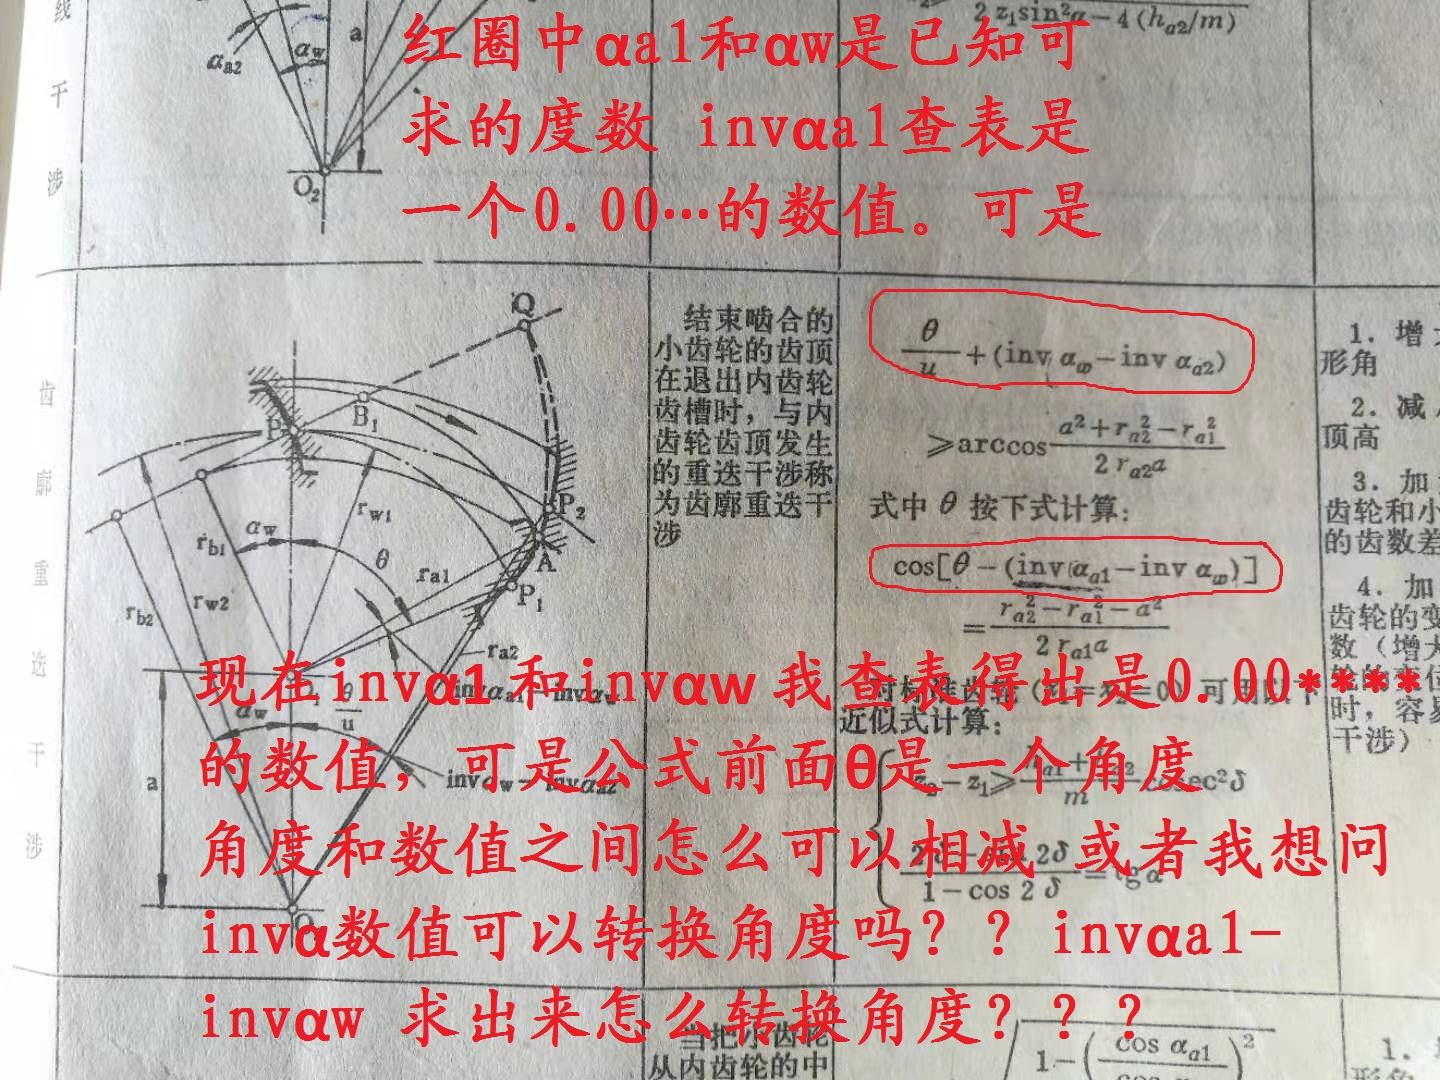 线
干
涉
αa2
αw
a
O2
2 z1sin²α-4(ha2/m)
红圈中αa1和αw是已知可
求的度数 invαa1查表是
一个0.00…的数值。可是
齿
廓
重
迭
干
涉
Q
B1
P2
A
P1
αw
θ
rw1
rb1
ra1
rw2
rb2
ra2
αw
θ
u
a
结束啮合的
小齿轮的齿顶
在退出内齿轮
齿槽时，与内
齿轮齿顶发生
的重迭干涉称
为齿廓重迭干
涉
θ/u+(inv αw-inv αa2)
≥arccos a²+ra2²-ra1² / 2 ra2a
式中 θ 按下式计算：
cos[θ-(inv αa1-inv αw)]
= ra2²-ra1²-a² / 2 ra1a
近似式计算：
1-cos 2 δ
1. 增大
形角
2. 减
顶高
3. 加
齿轮和小
的齿数差
4. 加
齿轮的变
数（增大
时，容易
干涉）
现在invα1和invαw 我查表得出是0.00****
的数值，可是公式前面θ是一个角度
角度和数值之间怎么可以相减 或者我想问
invα数值可以转换角度吗？？invαa1-
invαw 求出来怎么转换角度？？？
当把小齿轮
从内齿轮的中
1-(cos αa1
)²
1.
形角